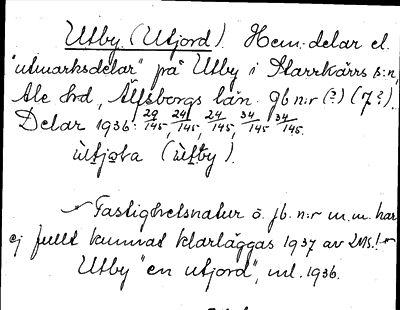 Utby (Utjord). Hem. delar el.
"utmarksdelar" på Utby i Starrkärrs s:n,
Ale hrd, Älfsborgs län. Jb n:r (?) (7?).
Delar 1936: 29/145, 24/145, 24/145, 34/145, 34/145.
ùtjoƨa (ùtby).
Fastighetsnatur o. jb. n:r m.m. har
ej fullt kunnat klarläggas 1937 av LMS.!
Utby "en utjord", ml. 1936.